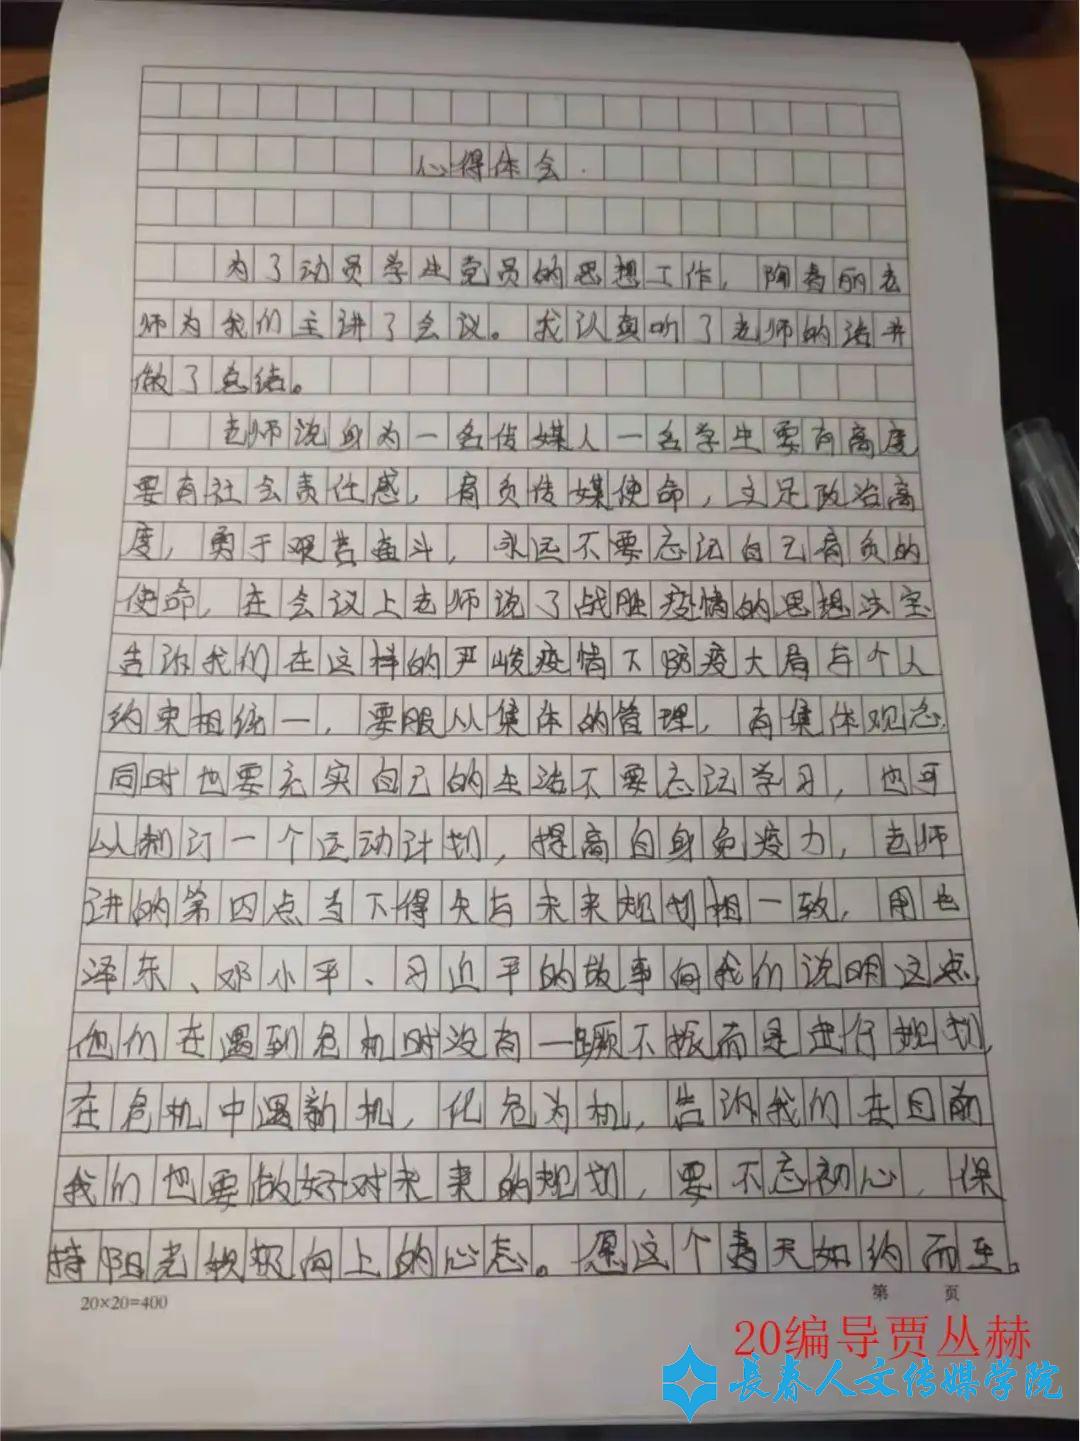 心得体会.
为了动员学生党员的思想工作，陶春丽老
师为我们主讲了会议。我认真听了老师的话并
做了总结。
老师说身为一名传媒人一名学生要有高度
要有社会责任感，肩负传媒使命，立足政治高
度，勇于艰苦奋斗，永远不要忘记自己肩负的
使命，在会议上老师说了战胜疫情的思想法宝
告诉我们在这样的严峻疫情下防疫大局与个人
约束相统一，要服从集体的管理，有集体观念，
同时也要充实自己的生活不要忘记学习，也可
以制订一个运动计划，提高自身免疫力，老师
讲的第四点当下得失与未来规划相一致，用毛
泽东、邓小平、习近平的故事向我们说明这点，
他们在遇到危机时没有一蹶不振而是进行规划，
在危机中遇新机，化危为机，告诉我们在目前
我们也要做好对未来的规划，要不忘初心，保
持阳光积极向上的心态。愿这个春天如约而至。
20×20=400 第 页
20编导贾丛赫
长春人文传媒学院